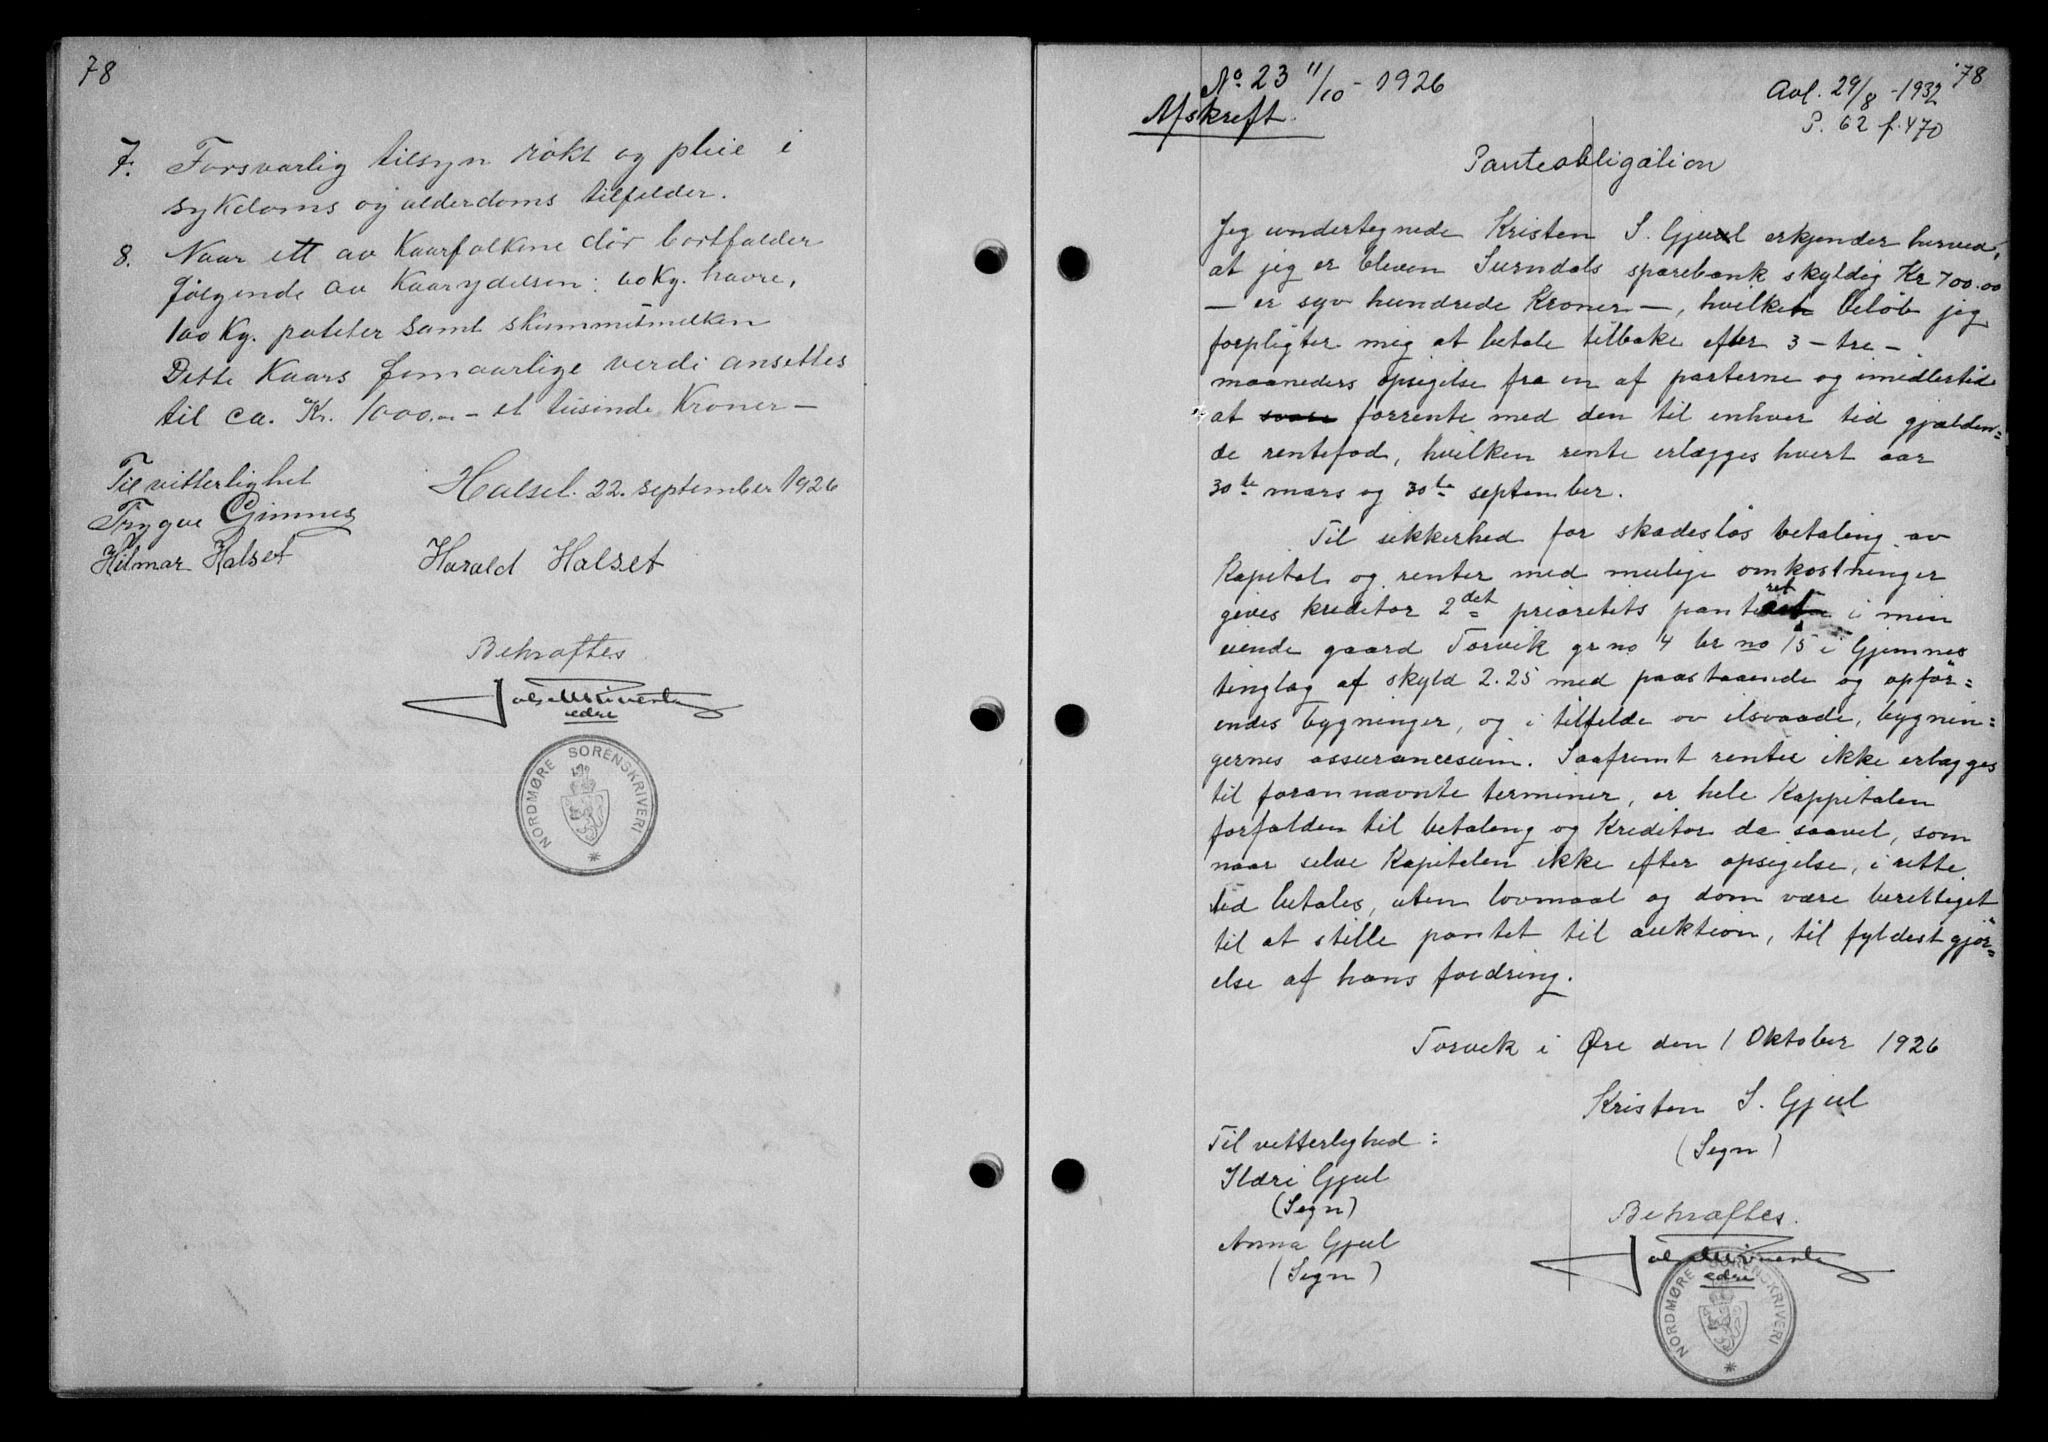 78
7. Forsvarlig tilsyn rökt og pleie i
sykdoms og alderdoms tilfelder.
8. Naar ett av Kaarfolkene dör bortfalder
fölgende av Kaarydelsen: 60 Kg. havre,
100 Kg. poteter samt skummetmelken
Dette Kaars femaarlige verdi ansettes
til ca. Kr. 1000.— et tusinde Kroner —
Til vitterlighet
Halset. 22. september 1926
Trygve Gimnes
Hilmar Halset
Harald Halset
Bekræftes
edre
NORDMØRE SORENSKRIVERI
No. 23 11/10 - 1926
Afskreft.
Avl. 29/8 - 1932
78
P. 62 f. 470
Panteobligation
Jeg undertegnede Kristen S. Gjul erkjender herved,
at jeg er bleven Surndals sparebank skyldig Kr 700.00
— er syv hundrede Kroner —, hvilket belöb jeg
forpligter mig at betale tilbake efter 3 — tre —
maaneders opsigelse fra en af parterne og imedlertid
at svare forrente med den til enhver tid gjælden=
de rentefod, hvilken rente erlægges hvert aar
30te mars og 30te september.
Til sikkerhed for skadeslös betaling av
Kapital og renter med mulige omkostninger
gives kreditor 2det prioretets panteret i min
eiende gaard Torvik gr no 4 br no 15 i Gjemnes
tinglag af skyld 2.25 med paastaaende og opför=
endes bygninger, og i tilfelde av ilsvaade, bygnin=
gernes assurancesum. Saafremt renter ikke erlægges
til forannævnte terminer, er hele Kappitalen
forfalden til betaling og Kreditor da saavel, som
naar selve Kapitalen ikke efter opsigelse, i rette
tid betales, uten lovmaal og dom være berettiget
til at stille pantet til auktion, til fyldestgjör=
else af hans fordring.
Torvik i Øre den 1 Oktober 1926
Kristen S. Gjul
(Segn)
Til vitterlighed:
Ildri Gjul
(Segn)
Anna Gjul
(Segn)
Bekræftes.
edre
NORDMØRE SORENSKRIVERI